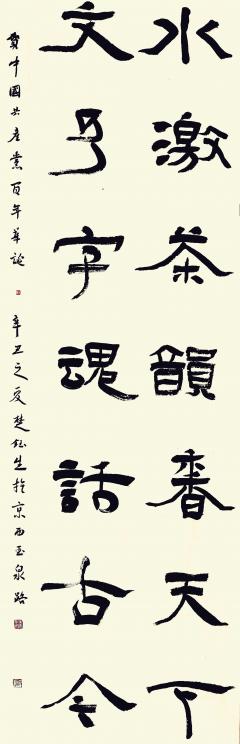 水激茶韻香天下
文乃字魂話古今
賀中國共產黨百年華誕
辛丑之夏楚鈺生於京西玉泉路